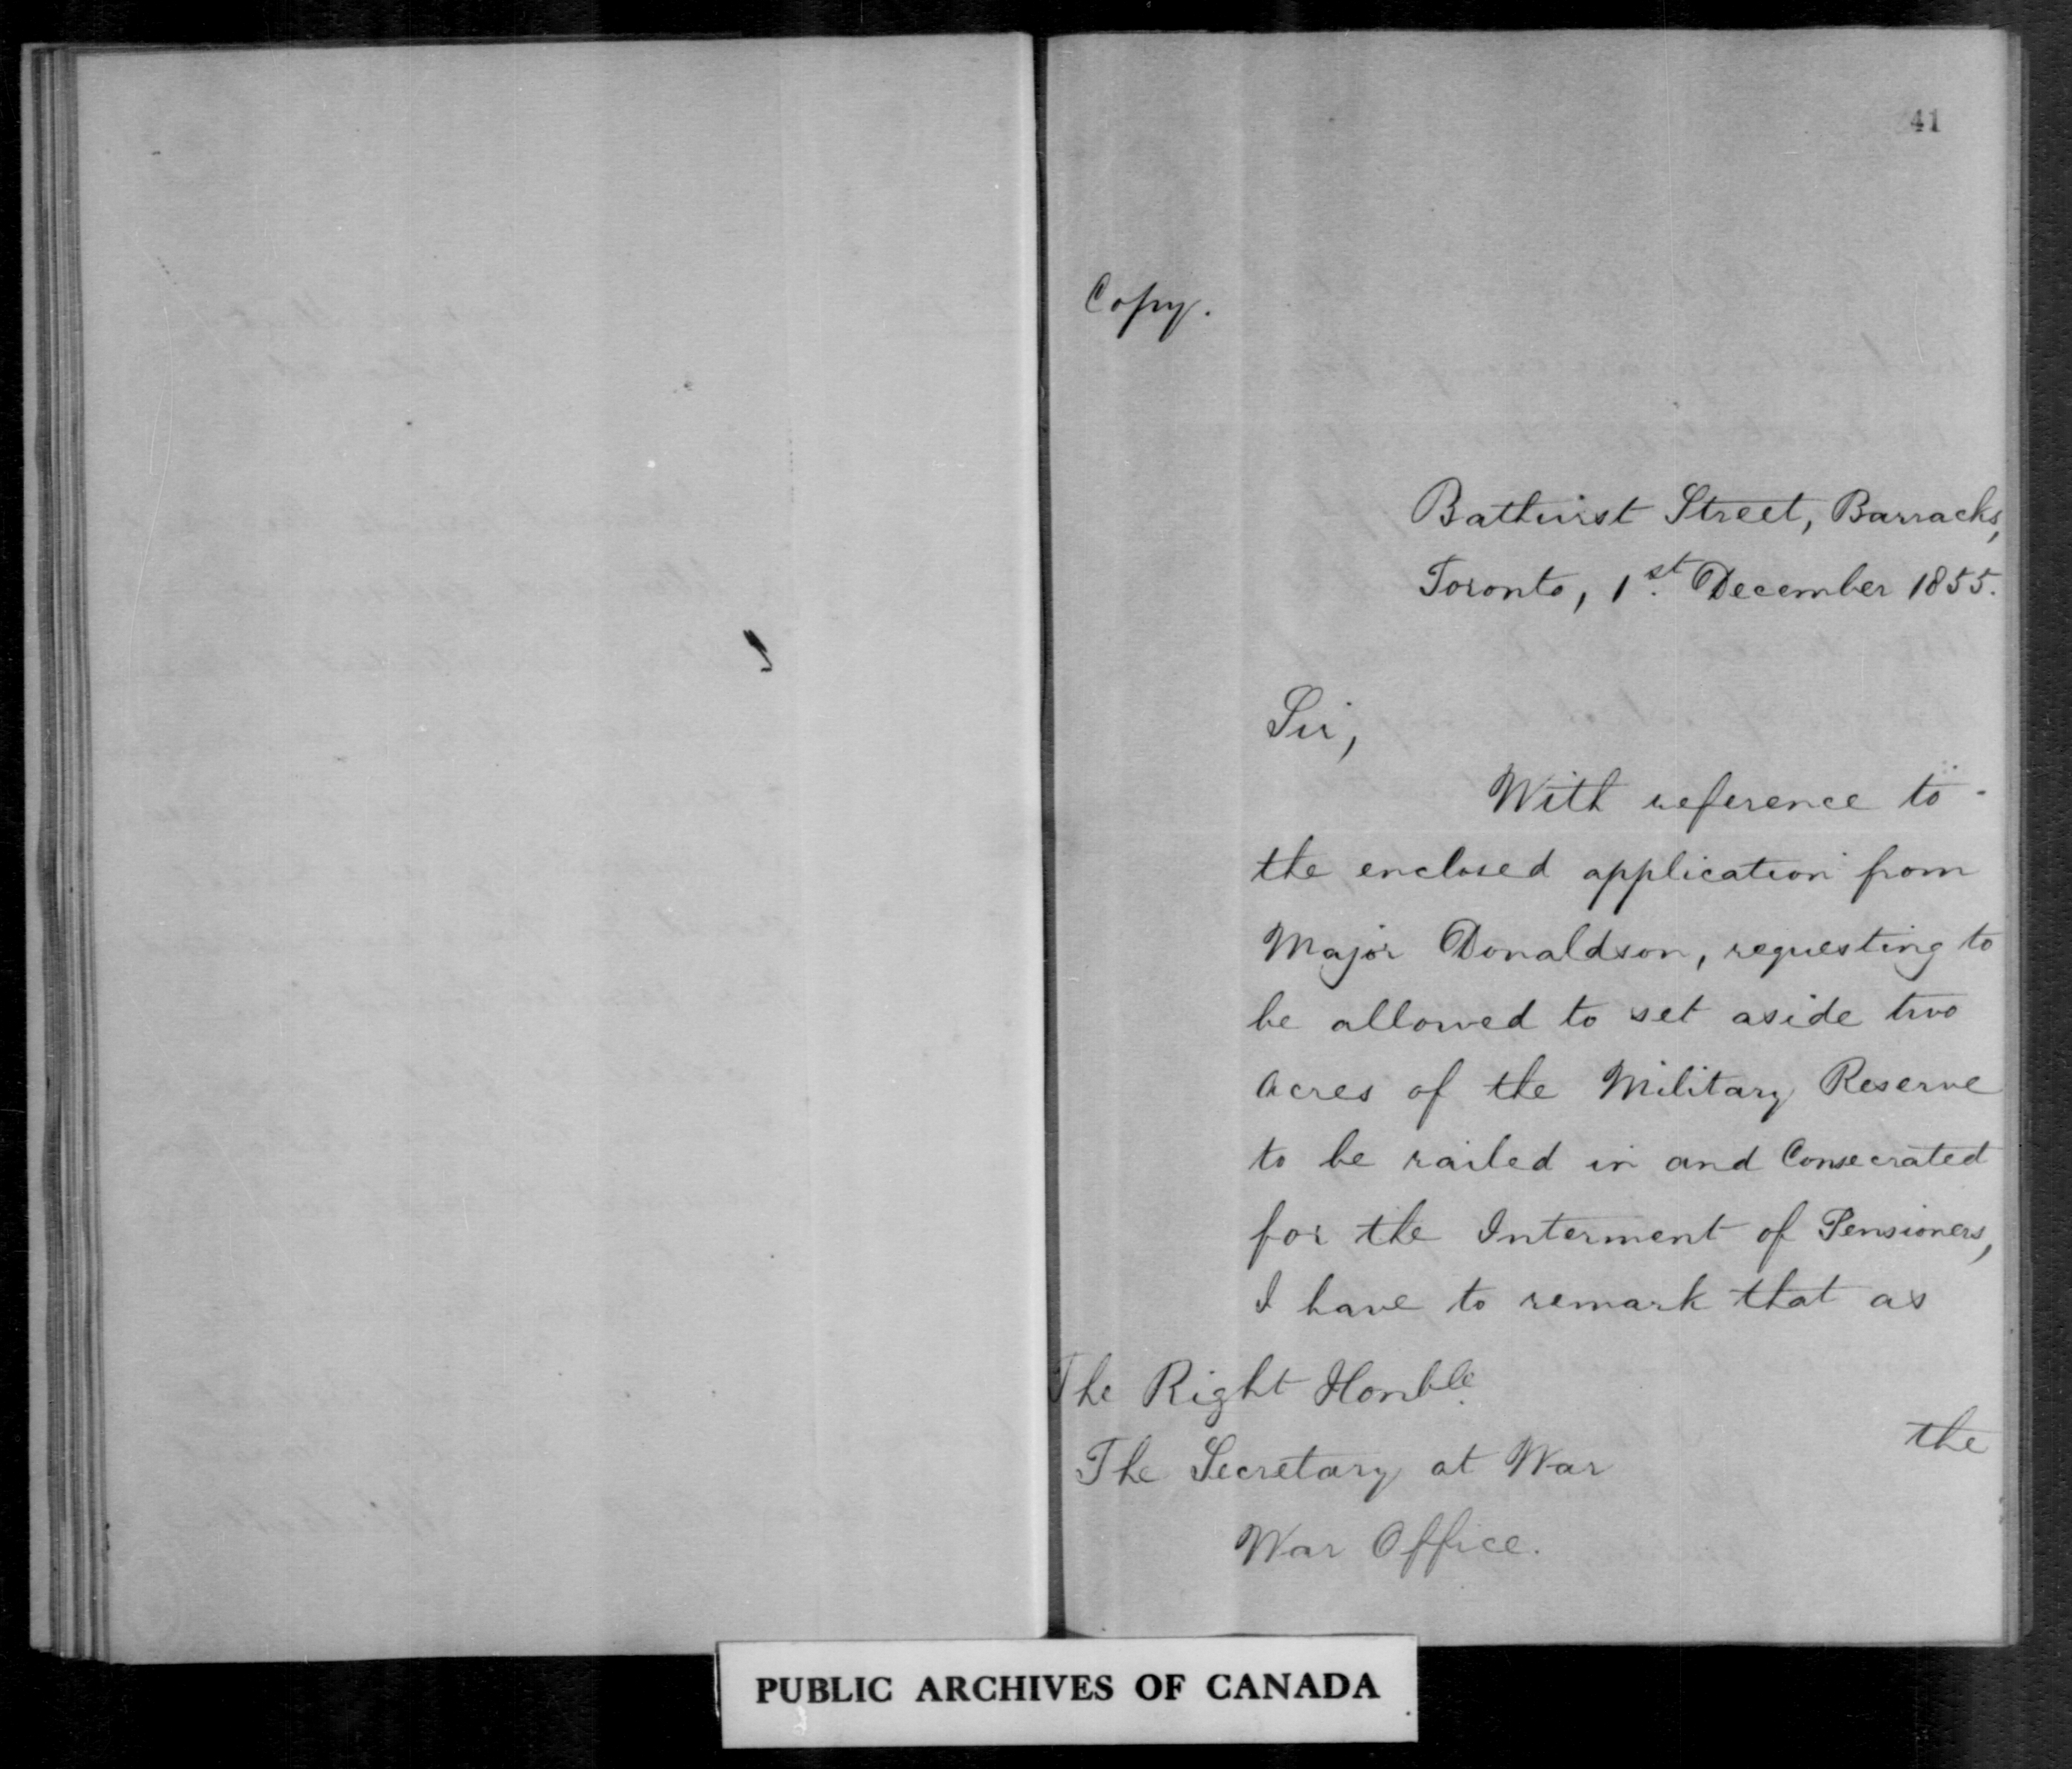 41
Copy.
Bathurst Street, Barracks,
Toronto, 1st. December 1855.
Sir,
With reference to
the enclosed application from
Major Donaldson, requesting to
be allowed to set aside two
acres of the Military Reserve
to be railed in and Consecrated
for the Interment of Pensioners,
I have to remark that as
The Right Honble.
the
The Secretary at War
War Office.
PUBLIC ARCHIVES OF CANADA